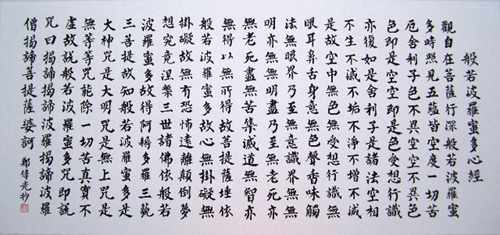 般若波羅蜜多心經
觀自在菩薩行深般若波羅蜜
多時照見五蘊皆空度一切苦
厄舍利子色不異空空不異色
色即是空空即是色受想行識
亦復如是舍利子是諸法空相
不生不滅不垢不淨不增不減
是故空中無色無受想行識無
眼耳鼻舌身意無色聲香味觸
法無眼界乃至無意識界無無
明亦無無明盡乃至無老死亦
無老死盡無苦集滅道無智亦
無得以無所得故菩提薩埵依
般若波羅蜜多故心無掛礙無
掛礙故無有恐怖遠離顛倒夢
想究竟涅槃三世諸佛依般若
波羅蜜多故得阿耨多羅三藐
三菩提故知般若波羅蜜多是
大神咒是大明咒是無上咒是
無等等咒能除一切苦真實不
虛故說般若波羅蜜多咒即說
咒曰揭諦揭諦波羅揭諦波羅
僧揭諦菩提薩婆訶